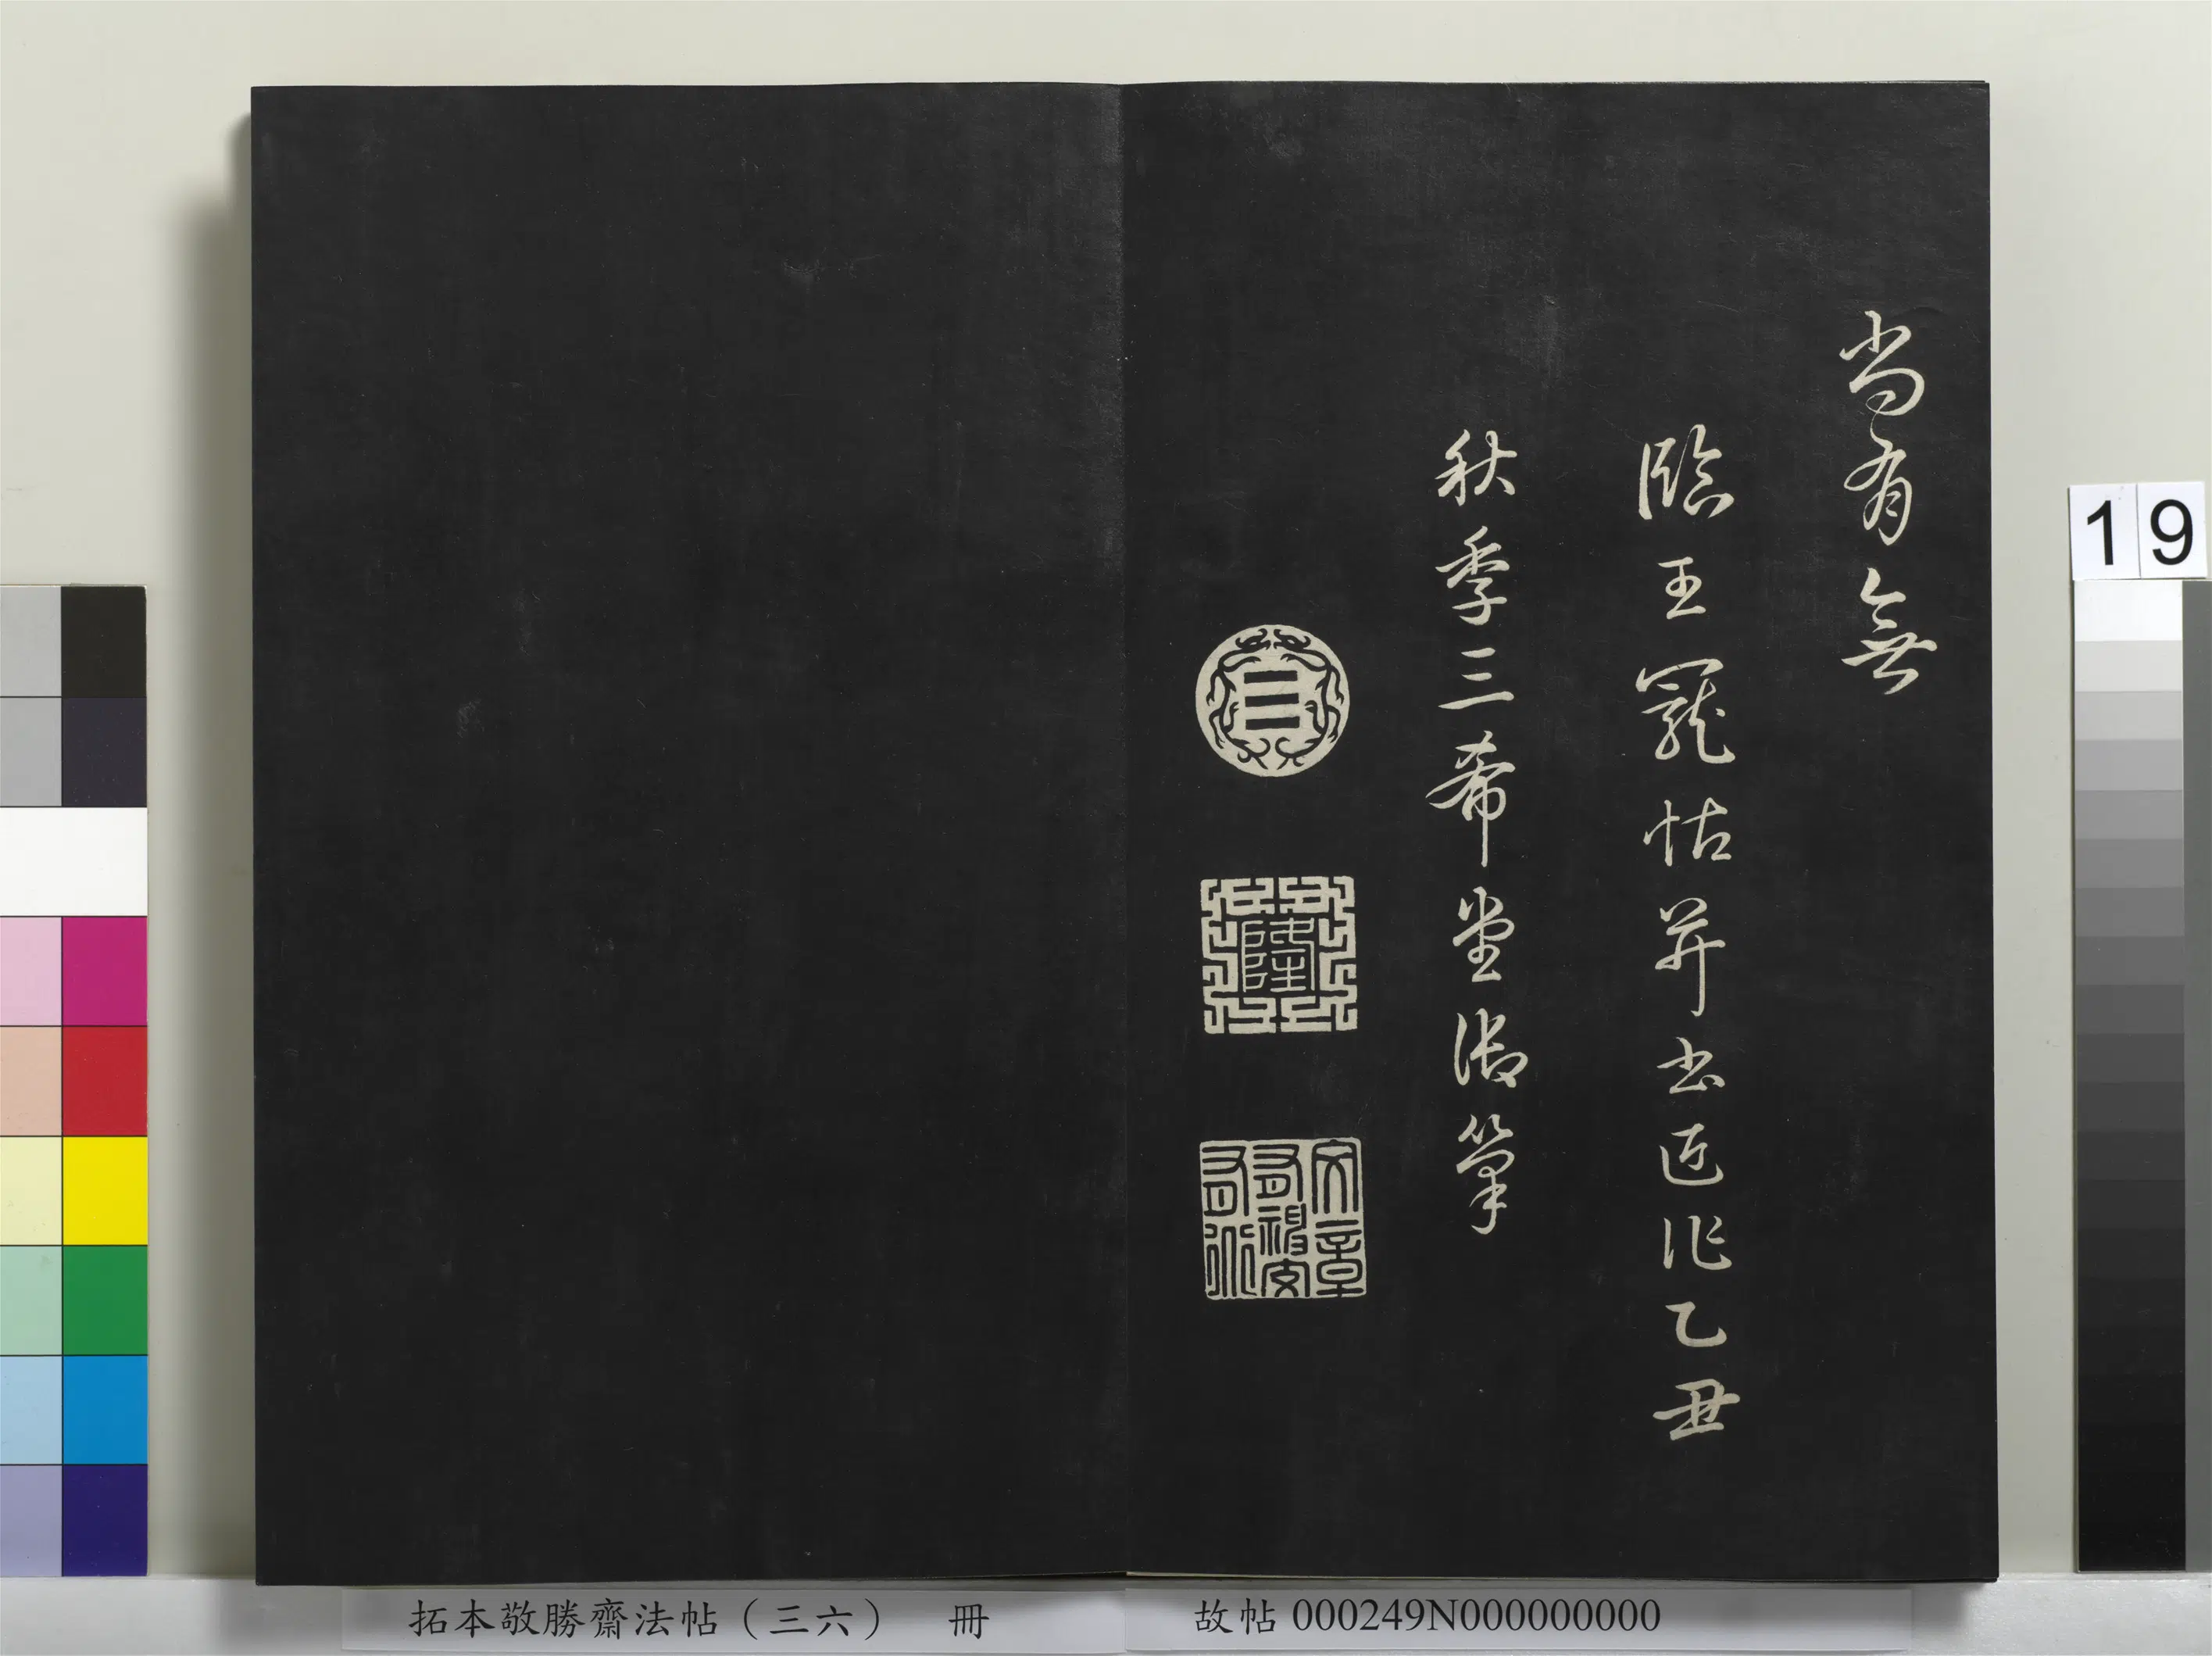 尚有無
臨王寵帖并書近作乙丑
秋季三希堂御筆
☰
隆
文章
有神交
有道
19
拓本敬勝齋法帖（三六） 冊
故帖 000249N000000000